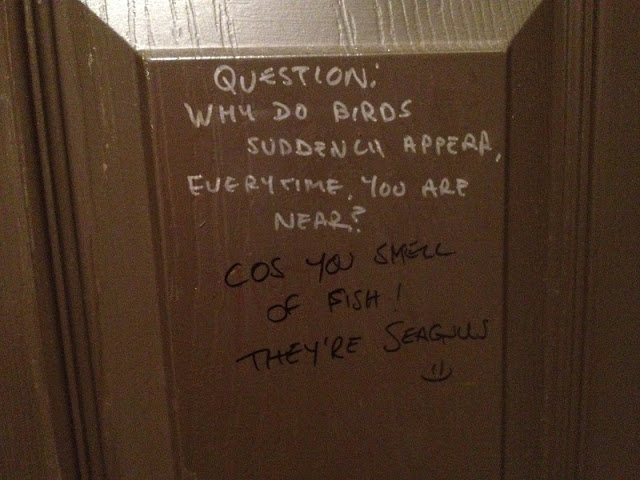 QUESTION:
WHY DO BIRDS
SUDDENLY APPEAR,
EVERYTIME, YOU ARE
NEAR?
COS YOU SMELL
OF FISH!
THEY'RE SEAGULLS